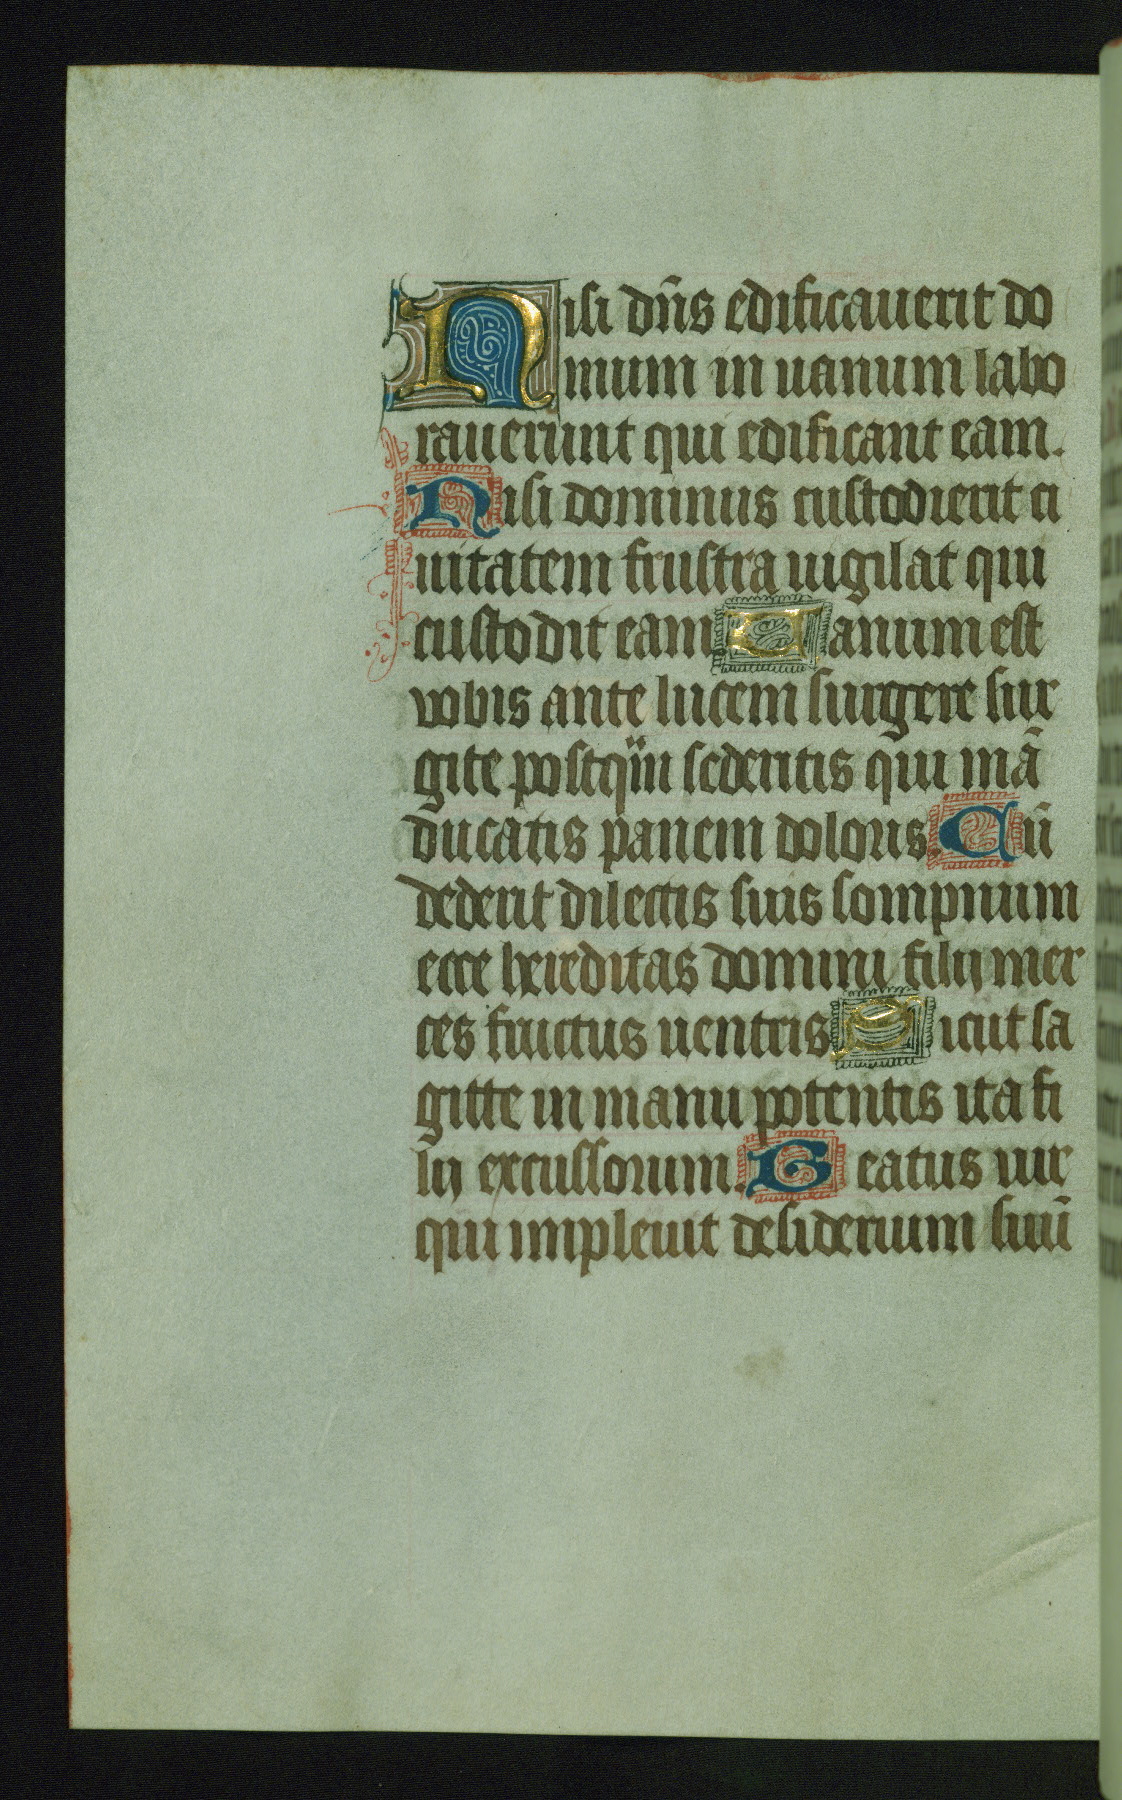 Nisi dñs edificauerit do
mum in uanum labo
rauerunt qui edificant eam.
Nisi dominus custodierit ci
uitatem frustra uigilat qui
custodit eam Uanum est
vobis ante lucem surgere sur
gite postq̃m sederitis qui mã
ducatis panem doloris. Cũ
dederit dilectis suis sompnum
ecce hereditas domini filij mer
ces fructus uentris Sicut sa
gitte in manu potentis ita fi
lij excussorum. Beatus uir
qui impleuit desiderium suũ